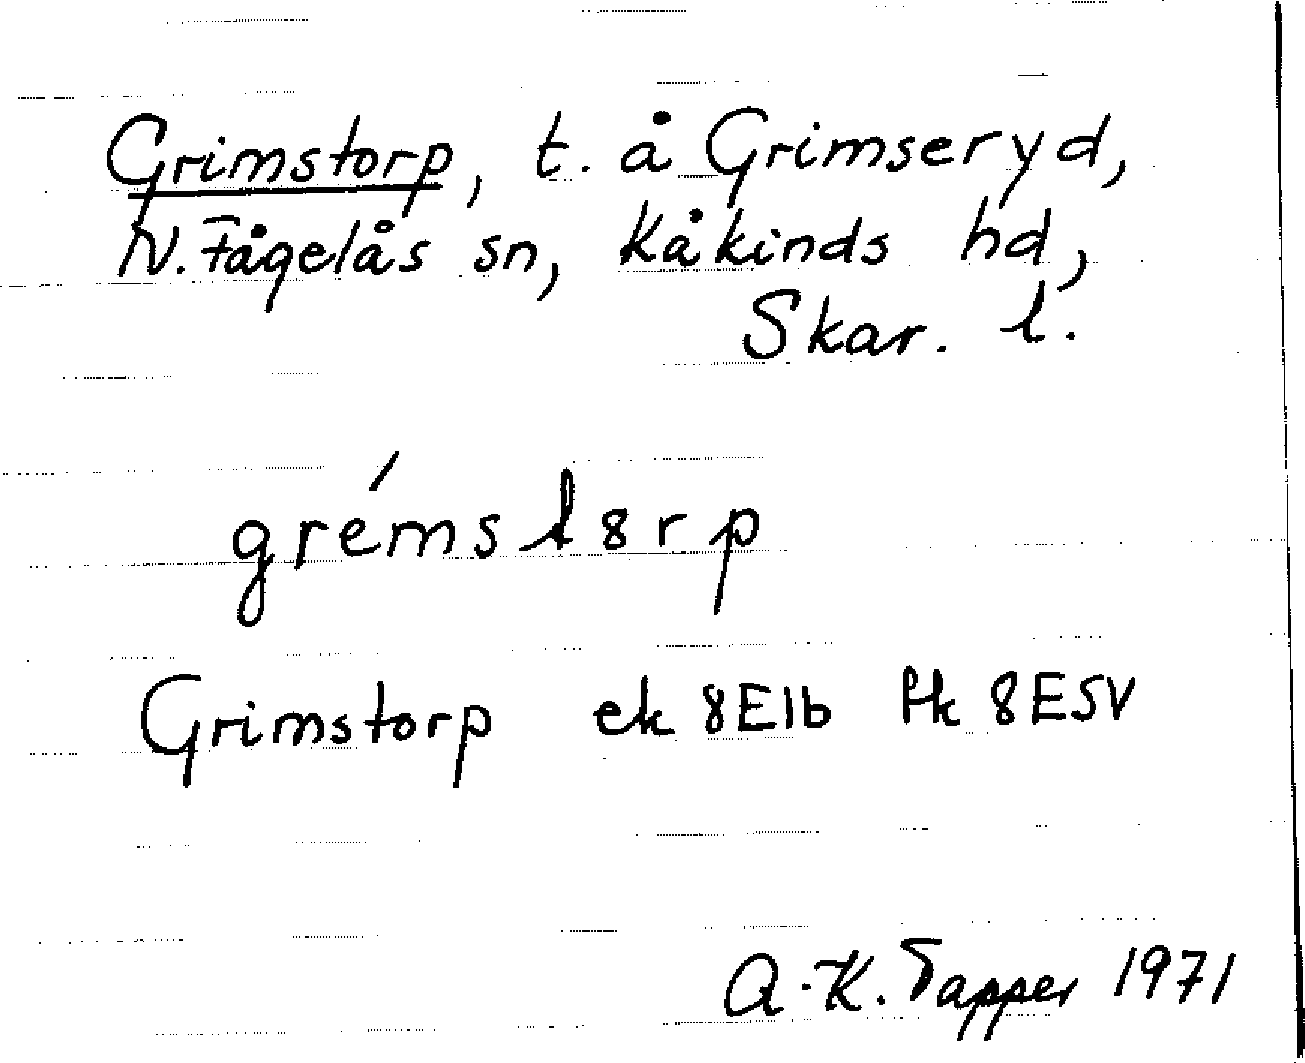 Grimstorp, t. å Grimseryd,
N. Fågelås sn, Kåkinds hd,
Skar. l.
grémstȣrp
Grimstorp ek 8E1b ftk 8ESV
A-K. Tapper 1971